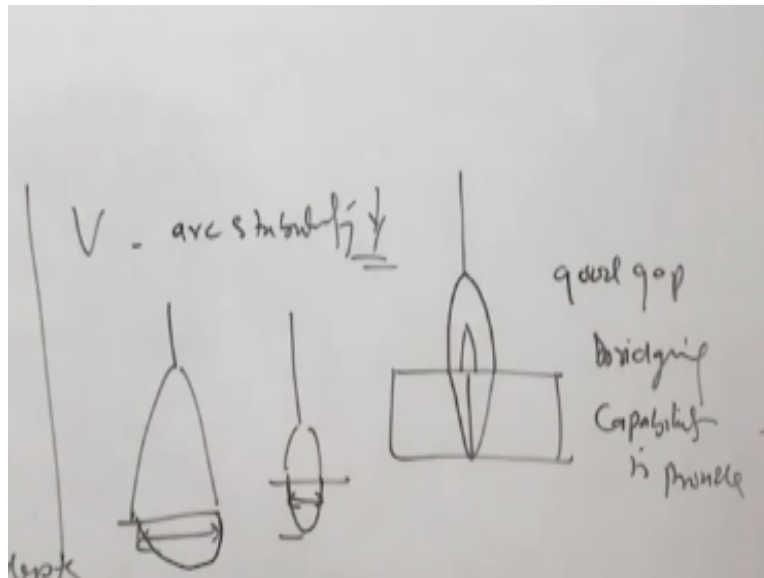 V - arc stability ↓
good gap
Bridging
Capability
is